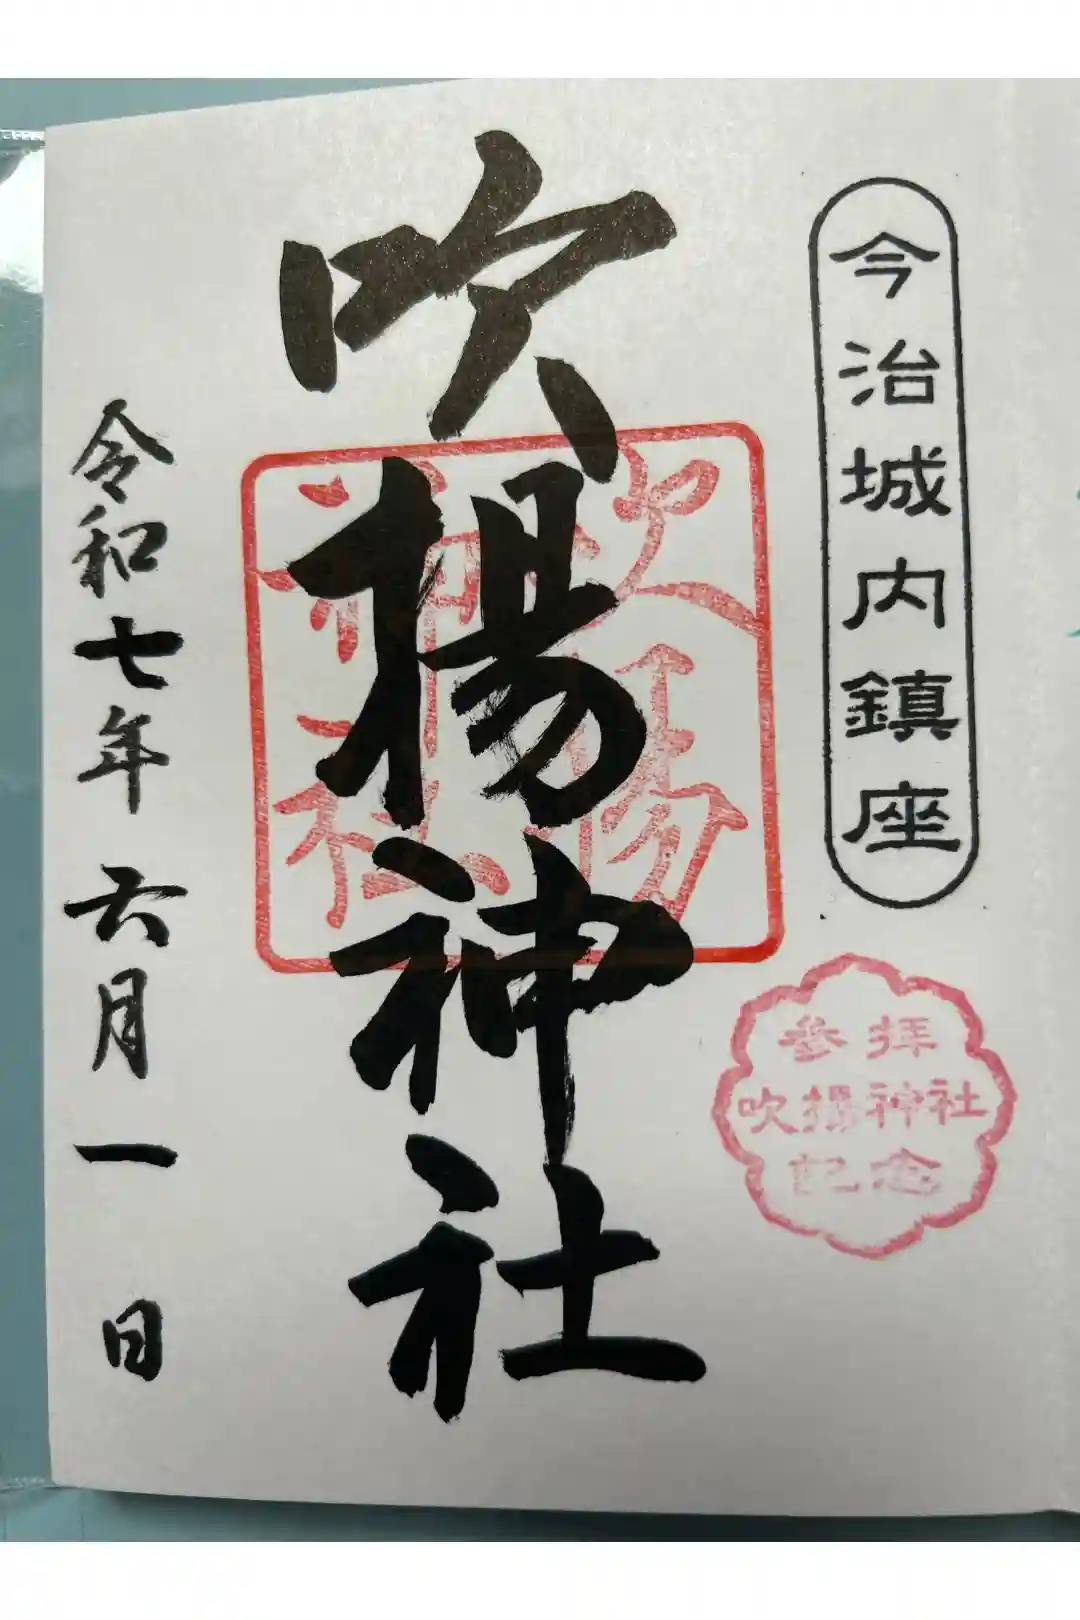 今治城内鎮座
参拝
吹揚神社
記念
吹揚神社
吹揚
神社
令和七年六月一日